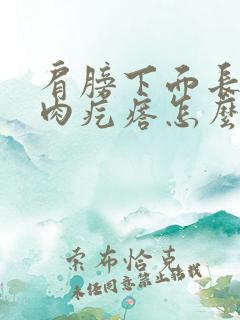 肩膀下面長
肉疙瘩怎麼
索布恰克
未经同意禁止转载